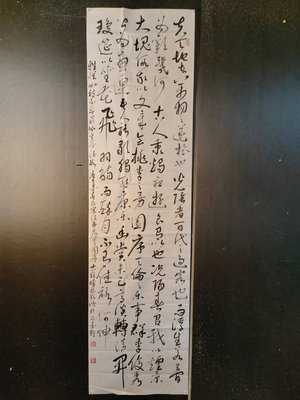 夫天地者萬物逆旅也光陰者百代之過客也而浮生若夢
為歡幾何古人秉燭夜遊良有以也況陽春召我以煙景
大塊假我以文章會桃李之芳園序天倫之樂事群季俊秀
皆為惠連吾人詠歌獨慚康樂幽賞未已高談轉清開
瓊筵以坐花飛羽觴而醉月不有佳詠何伸
雅懷如詩不成罰依金谷酒數